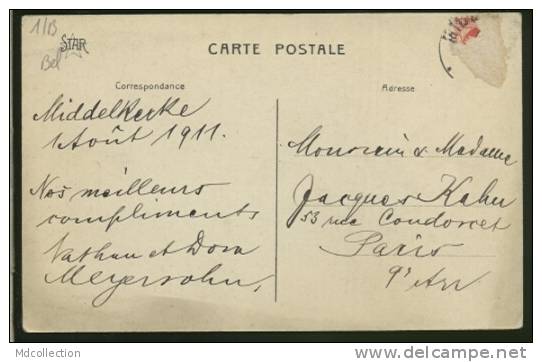 1/B
Bel
STAR
CARTE POSTALE
Correspondance
Adresse
Middelkerke
1 Août 1911.
Nos meilleurs
compliments
Nathan et Dora
Meyersohn,
Monsieur & Madame
Jacques Kahn
53 rue Condorcet
Paris
9e Arr
Mdcollection
www.delcampe.net